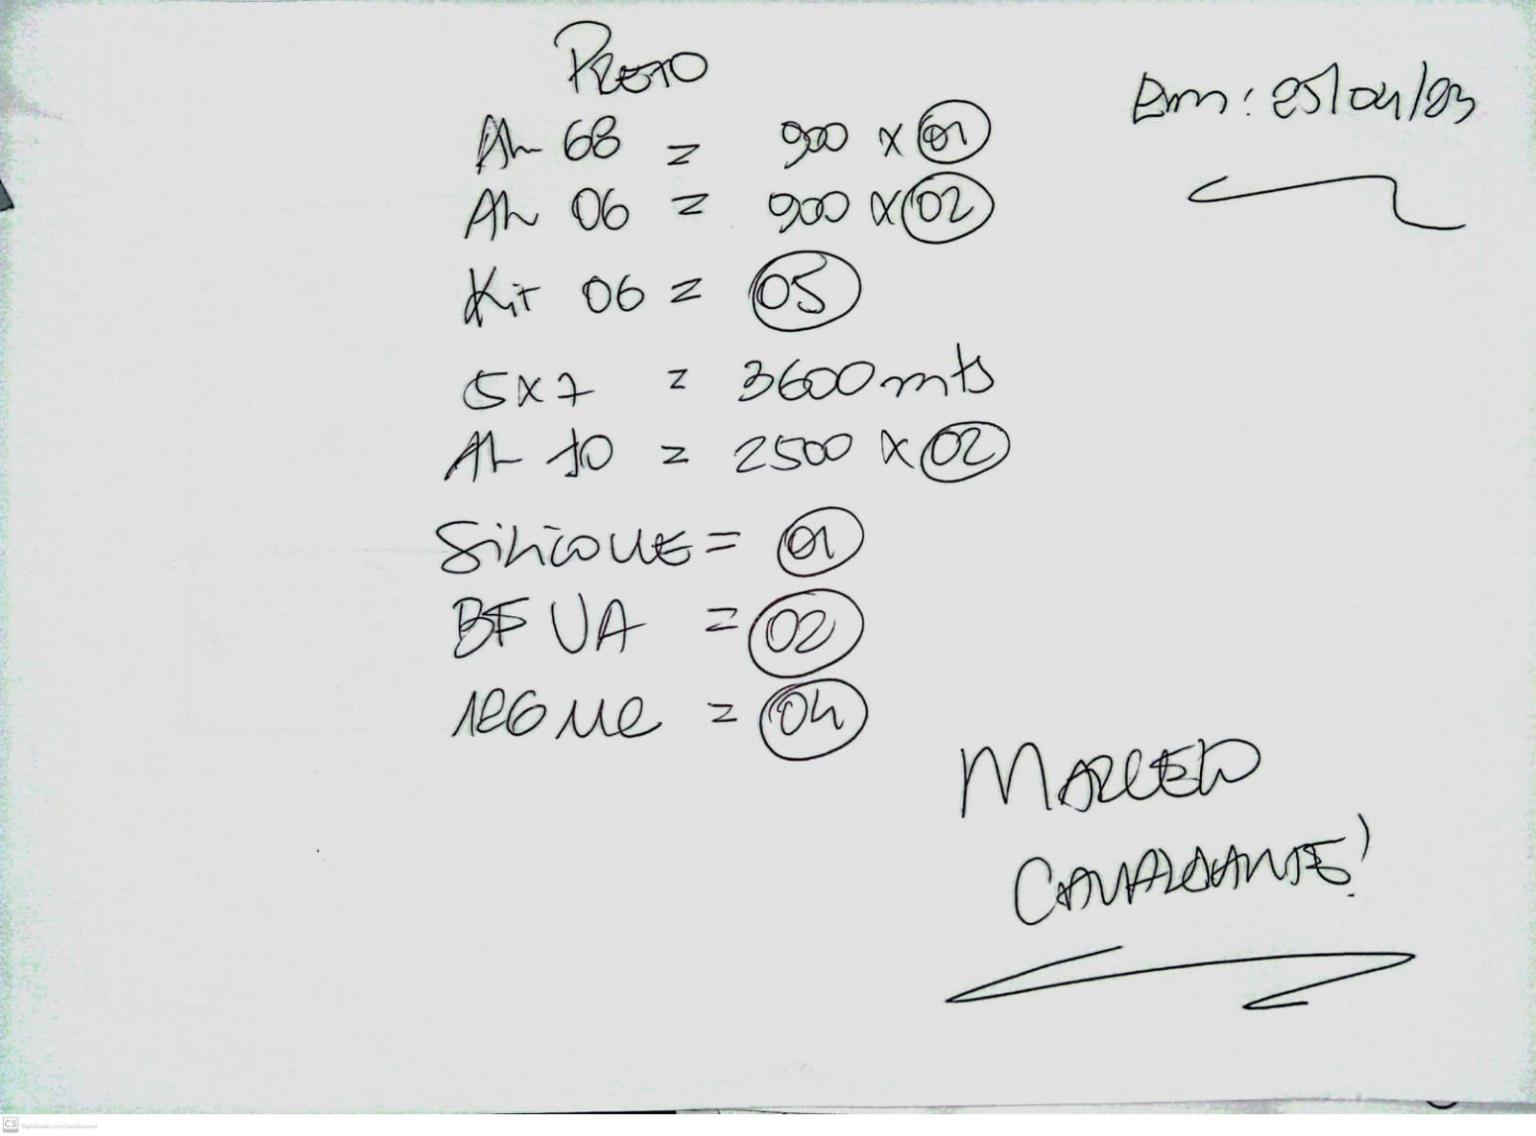 PRETO
Em: 25/04/23
AL 68 = 900 x 01
AL 06 = 900 x 02
Kit 06 = 05
5x7 = 3600 mts
AL 10 = 2500 x 02
Silicone = 01
BF UA = 02
= 04
MARCELO
CAVALCANTE!
CS